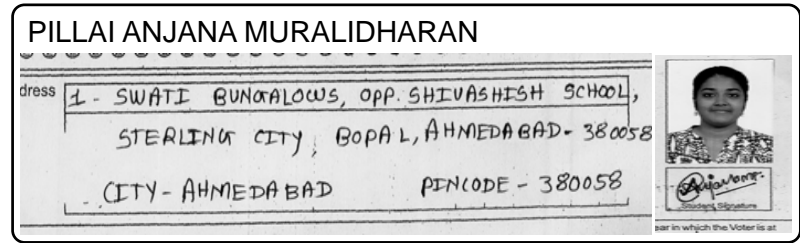 PILLAI ANJANA MURALIDHARAN
dress
1 - SWATI BUNGALOWS, OPP. SHIVASHISH SCHOOL,
STERLING CITY, BOPAL, AHMEDABAD - 380058
CITY - AHMEDABAD PINCODE - 380058
Student Signature
ear in which the Voter is at